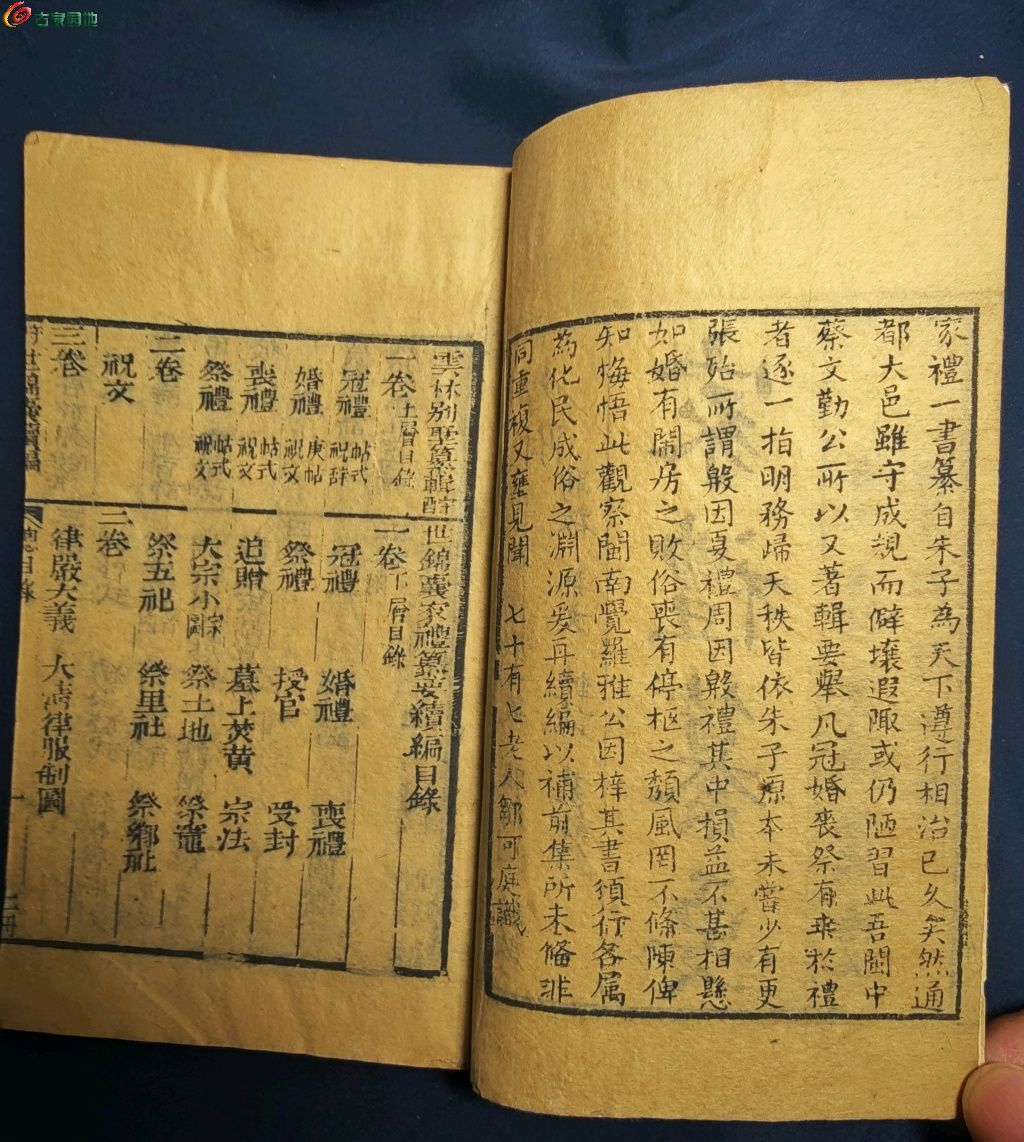 古泉园地
家禮一書纂自朱子為天下遵行相沿已久矣然通
都大邑雖守成規而僻壤遐陬或仍陋習此吾閩中
蔡文勤公所以又著輯要舉凡冠婚喪祭有乖於禮
者逐一指明務歸天秩皆依朱子原本未嘗少有更
張殆所謂殷因夏禮周因殷禮其中損益不甚相懸
如婚有鬧房之敗俗喪有停柩之頹風罔不條陳俾
知悔悟此觀察閩南覺羅雅公因梓其書頒行各属
為化民成俗之淵源爰再續編以補前集所未備非
同重複又壅見聞 七十有七老人鄒可庭識
雲林別墅纂輯酬世錦囊家禮纂要續編目錄
一卷上層目錄
冠禮 帖式 祝辞
婚禮 庚帖 祝文
喪禮 帖式 祝文
祭禮 帖式 祝文
二卷
祝文
三卷
一卷下層目錄
冠禮 婚禮 喪禮
祭禮 授官 受封
追贈 墓上焚黃 宗法
大宗小宗 祭土地 祭竈
祭五祀 祭里社 祭鄉社
二卷
律嚴大義 大清律服制圖